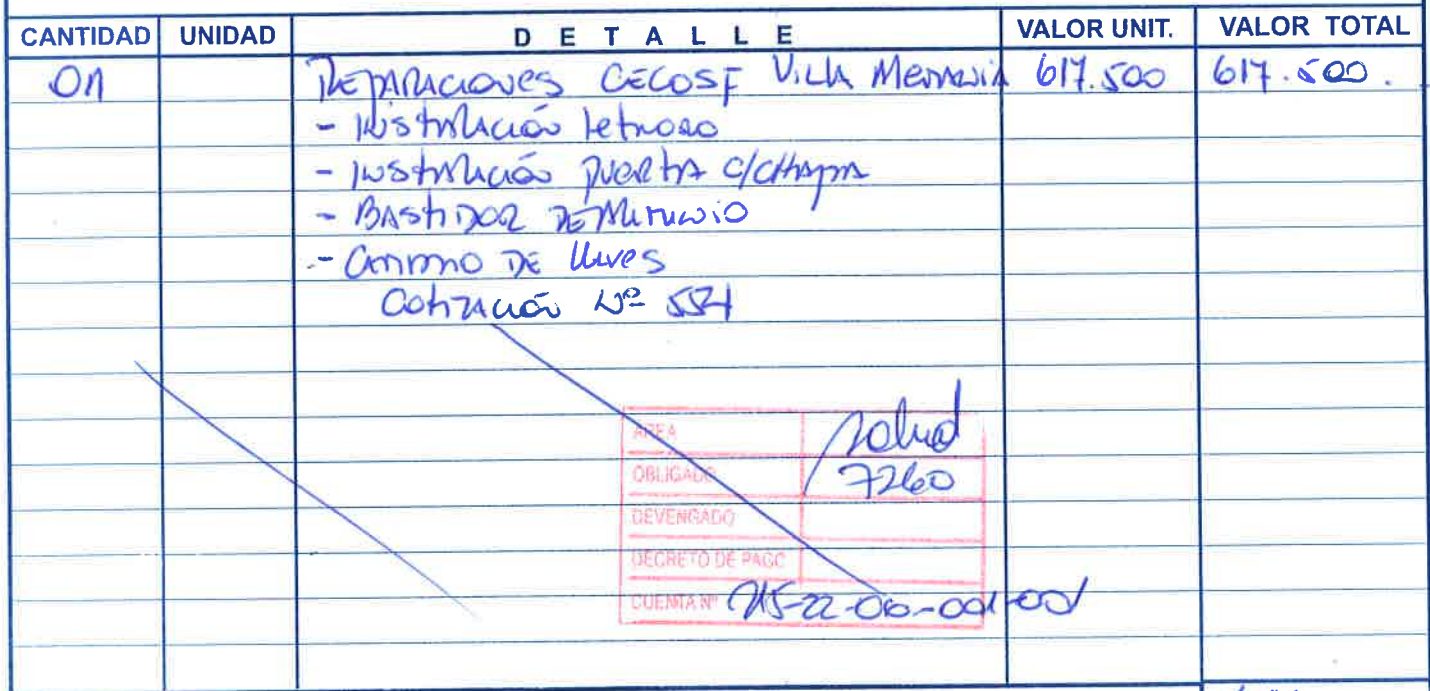 CANTIDAD UNIDAD DETALLE VALOR UNIT. VALOR TOTAL
01 REPARACIONES CECOSF Villa 617.500 617.500.
- INSTALACIÓN letrero
- INSTALACIÓN PUERTA C/CHAPA
- BASTIDOR DE ALUMINIO
- CAMBIO DE llaves
COTIZACIÓN Nº 554
AREA Salud
OBLIGADO 7260
DEVENGADO
DECRETO DE PAGO
CUENTA Nº 215-22-06-001-001